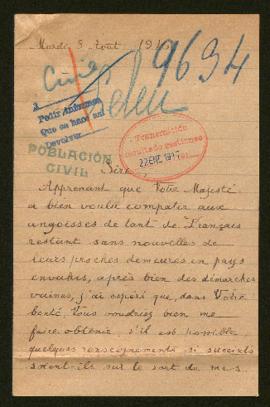 Mardi 8 Août 1916
9694
Civil
A
Pedir Informes
Que se hace así
Devolver
POBLACIÓN
CIVIL
Transmisión
resultado gestiones
22 ENE 1917
Sire,
Apprenant que Votre Majesté
a bien voulu compatir aux
angoisses de tant de Français
restant sans nouvelles de
leurs proches demeurés en pays
envahis, après bien des démarches
vaines, j'ai espéré que, dans Votre
bonté, Vous voudriez bien me
faire obtenir, s'il est possible
quelques renseignements si succints
soient-ils sur le sort de mes